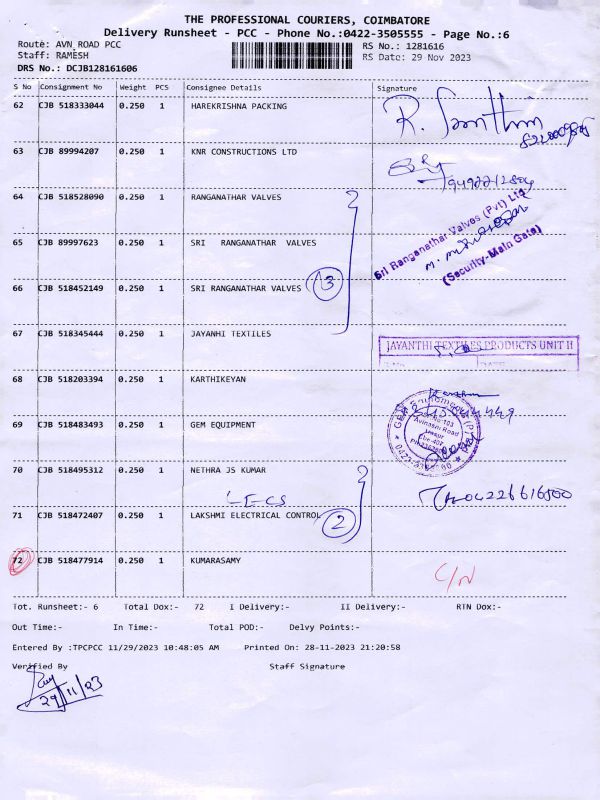 THE PROFESSIONAL COURIERS, COIMBATORE
Delivery Runsheet - PCC - Phone No.:0422-3505555 - Page No.:6
Route: AVN_ROAD PCC
Staff: RAMESH
DRS No.: DCJB128161606
RS No.: 1281616
RS Date: 29 Nov 2023
S No Consignment No Weight PCS Consignee Details Signature
62 CJB 518333044 0.250 1 HAREKRISHNA PACKING
R. Santhin
63 CJB 89994207 0.250 1 KNR CONSTRUCTIONS LTD
64 CJB 518528090 0.250 1 RANGANATHAR VALVES
Sri Ranganathar Valves (Pvt) Ltd
(Security-Main Gate)
65 CJB 89997623 0.250 1 SRI RANGANATHAR VALVES
66 CJB 518452149 0.250 1 SRI RANGANATHAR VALVES
3
67 CJB 518345444 0.250 1 JAYANHI TEXTILES
JAYANTHI TEXTILES PRODUCTS UNIT II
68 CJB 518203394 0.250 1 KARTHIKEYAN
69 CJB 518483493 0.250 1 GEM EQUIPMENT
Avinashi Road
70 CJB 518495312 0.250 1 NETHRA JS KUMAR
LECS
04226616500
71 CJB 518472407 0.250 1 LAKSHMI ELECTRICAL CONTROL
2
72 CJB 518477914 0.250 1 KUMARASAMY
C/N
Tot. Runsheet:- 6 Total Dox:- 72 I Delivery:- II Delivery:- RTN Dox:-
Out Time:- In Time:- Total POD:- Delvy Points:-
Entered By :TPCPCC 11/29/2023 10:48:05 AM Printed On: 28-11-2023 21:20:58
Verified By Staff Signature
29/11/23